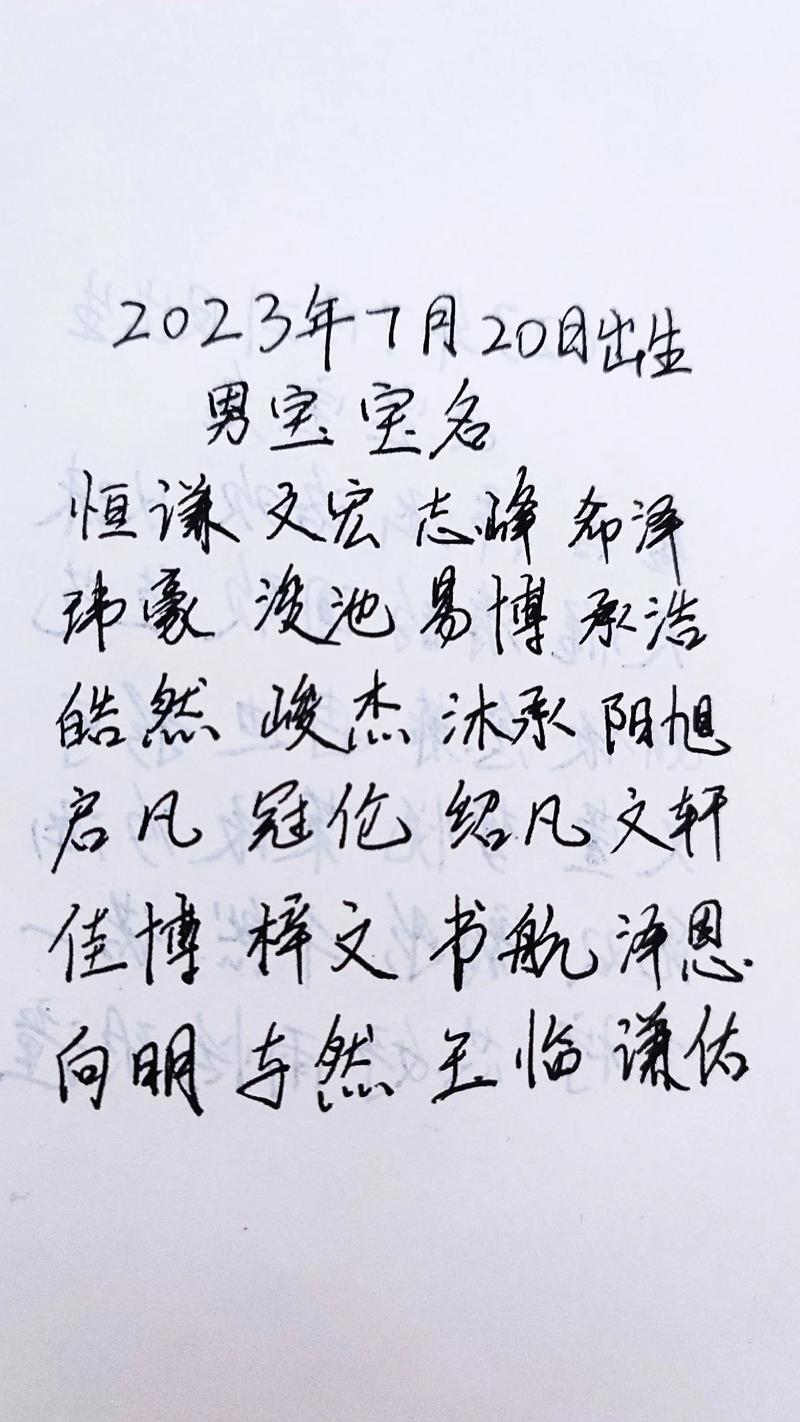 2023年7月20日出生
男宝宝名
恒谦 文宏 志峰 希泽
玮豪 浚池 易博 承浩
皓然 峻杰 沐承 阳旭
启凡 冠伦 绍凡 文轩
佳博 梓文 书航 泽恩
向明 与然 玉临 谦佑